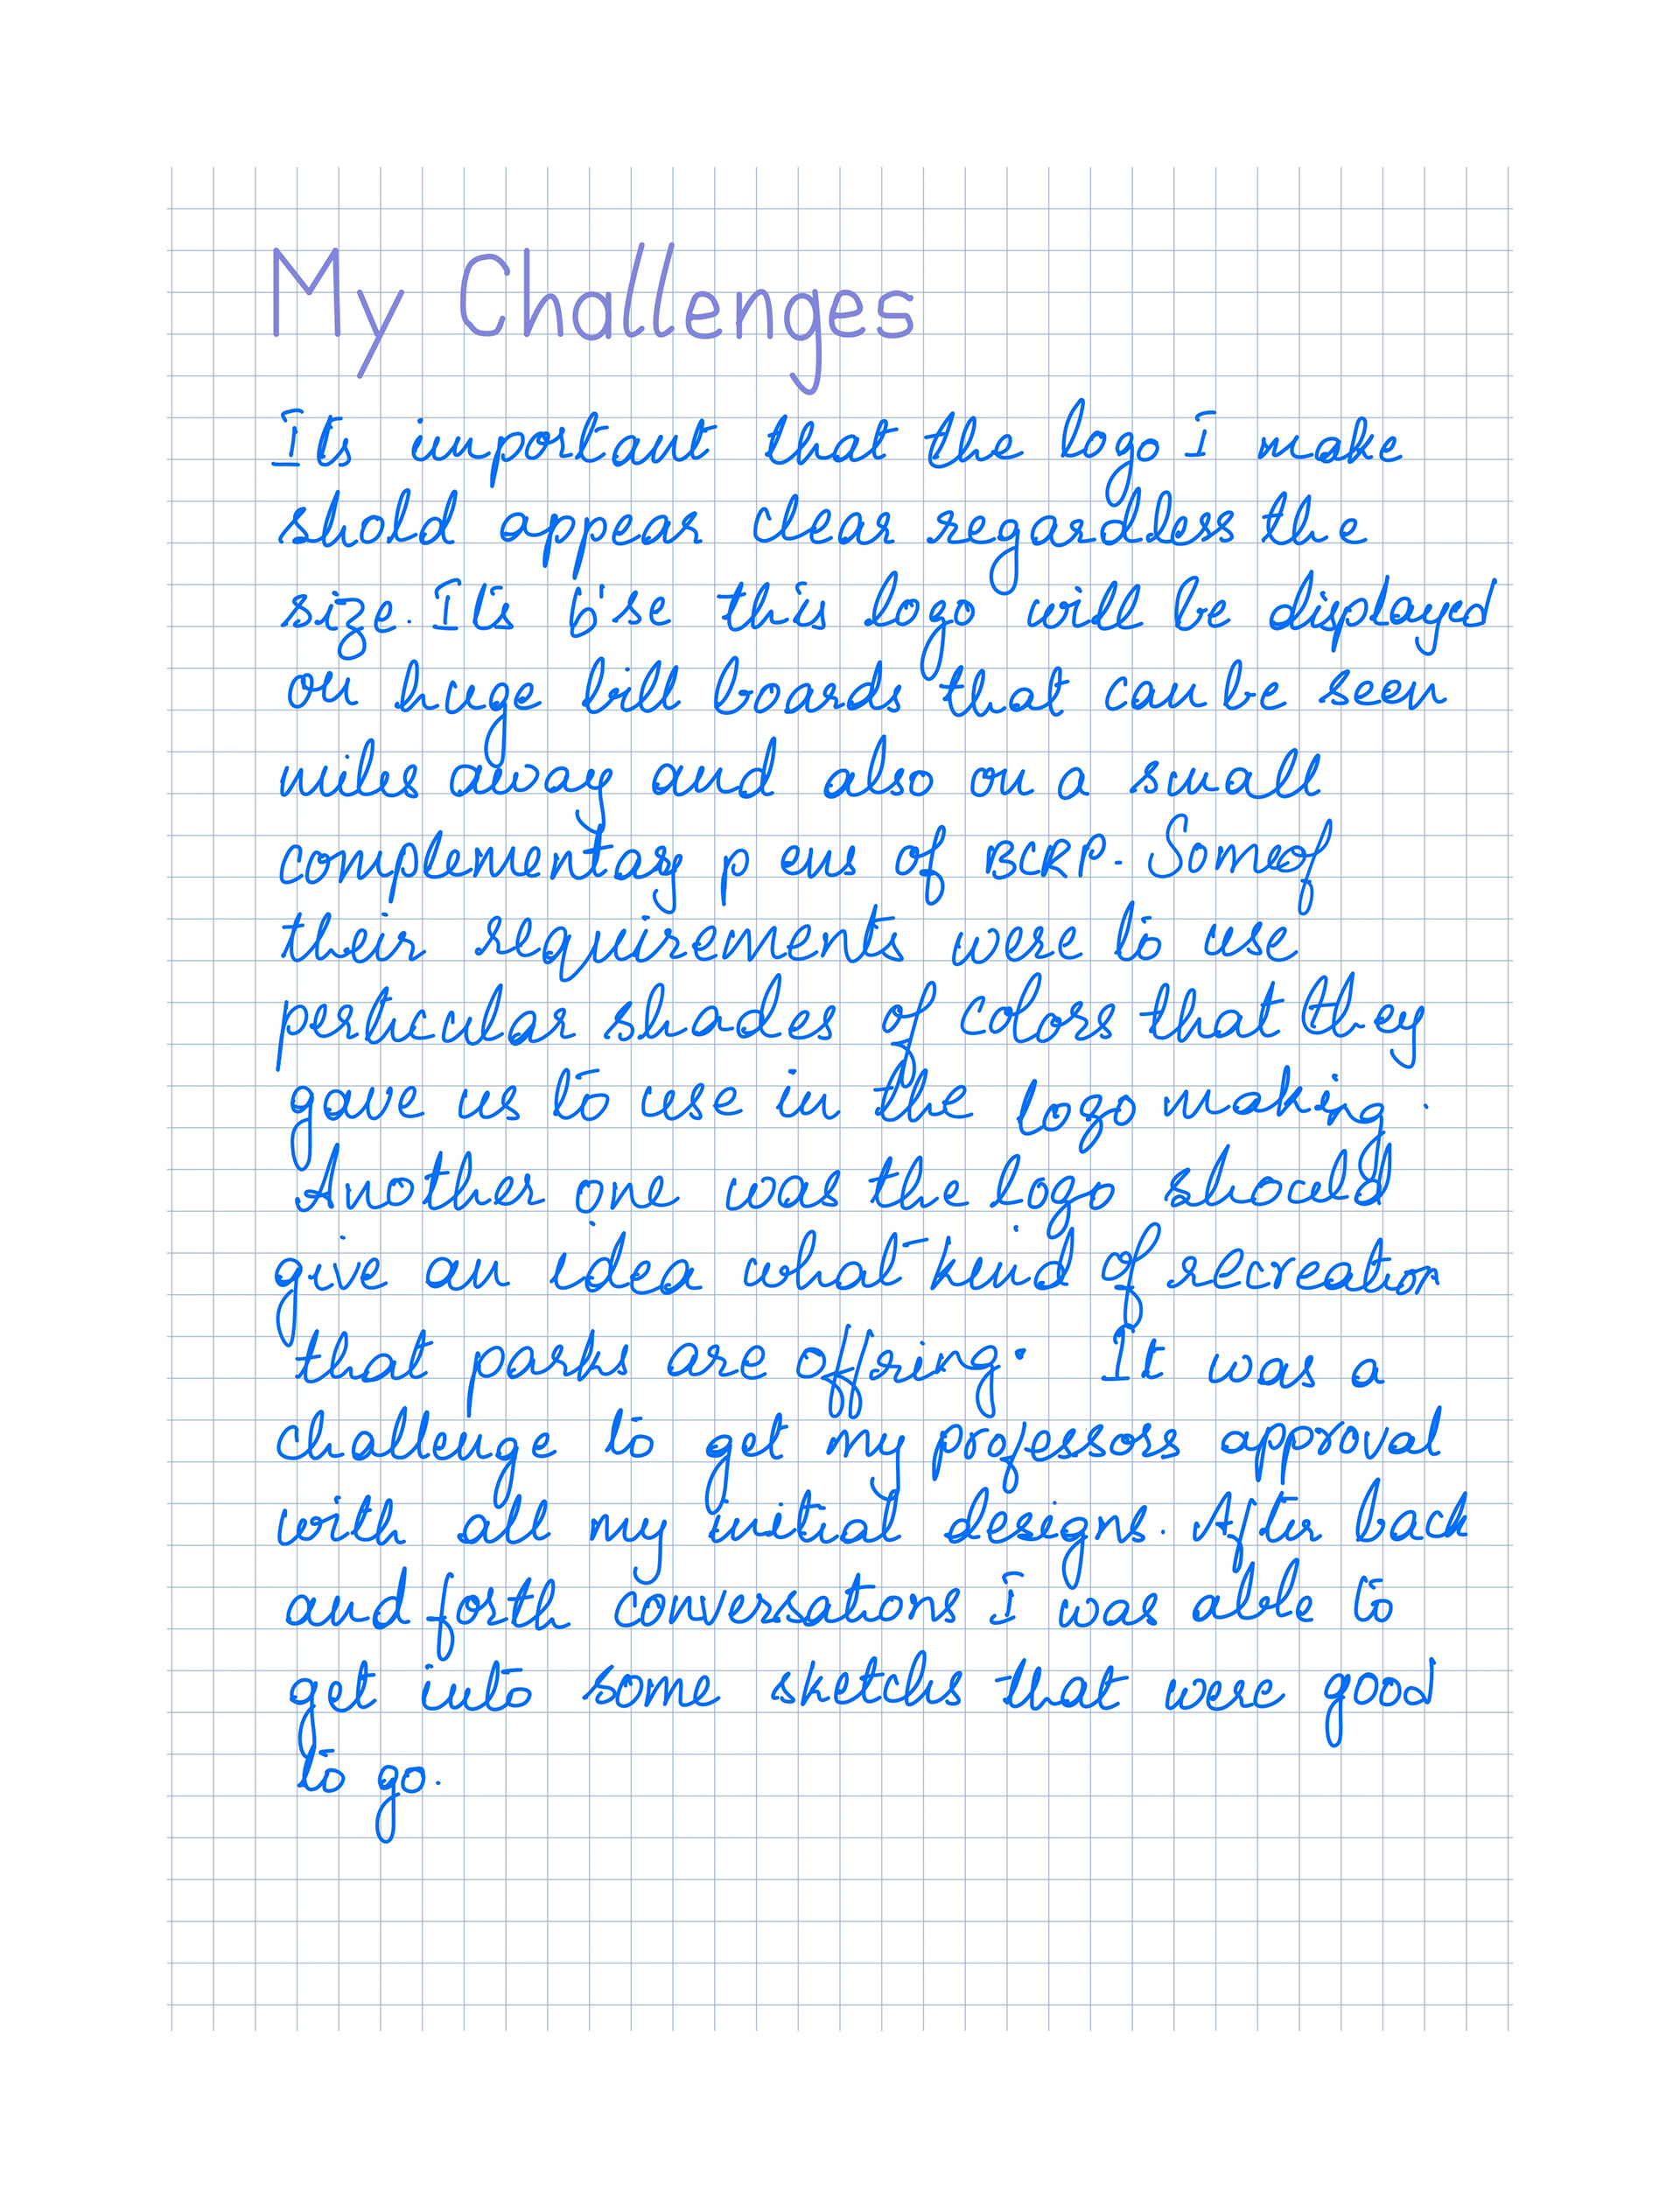 My Challenges
Its important that the logo I make
shold appear clear regardless the
size. Its b'se this logo will be displayed
on huge bill boards that can be seen
miles away and also on a small
complementary pens of BCRP. Some of
their requirements were to use
perticular shades of colors that they
gave us to use in the logo making.
Another one was the logo should
give an idea what kind of recreation
that parks are offring. It was a
challenge to get my professors approval
with all my initial designs. After back
and forth conversations I was able to
get into some sketchs that were good
to go.